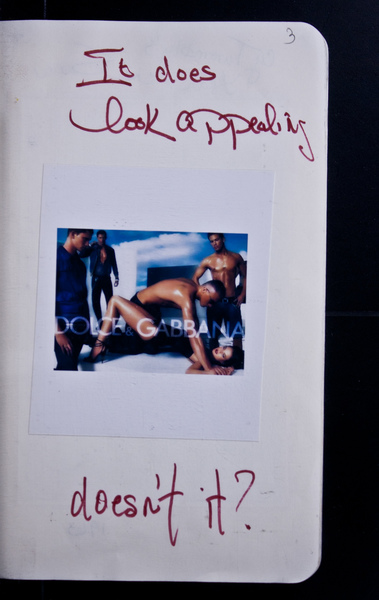 3
It does
look appealing
DOLCE & GABBANA
doesn't it?